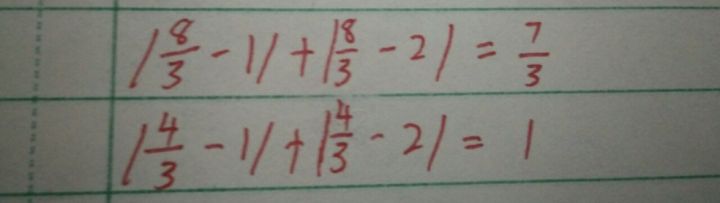 |8/3 - 1| + |8/3 - 2| = 7/3
|4/3 - 1| + |4/3 - 2| = 1